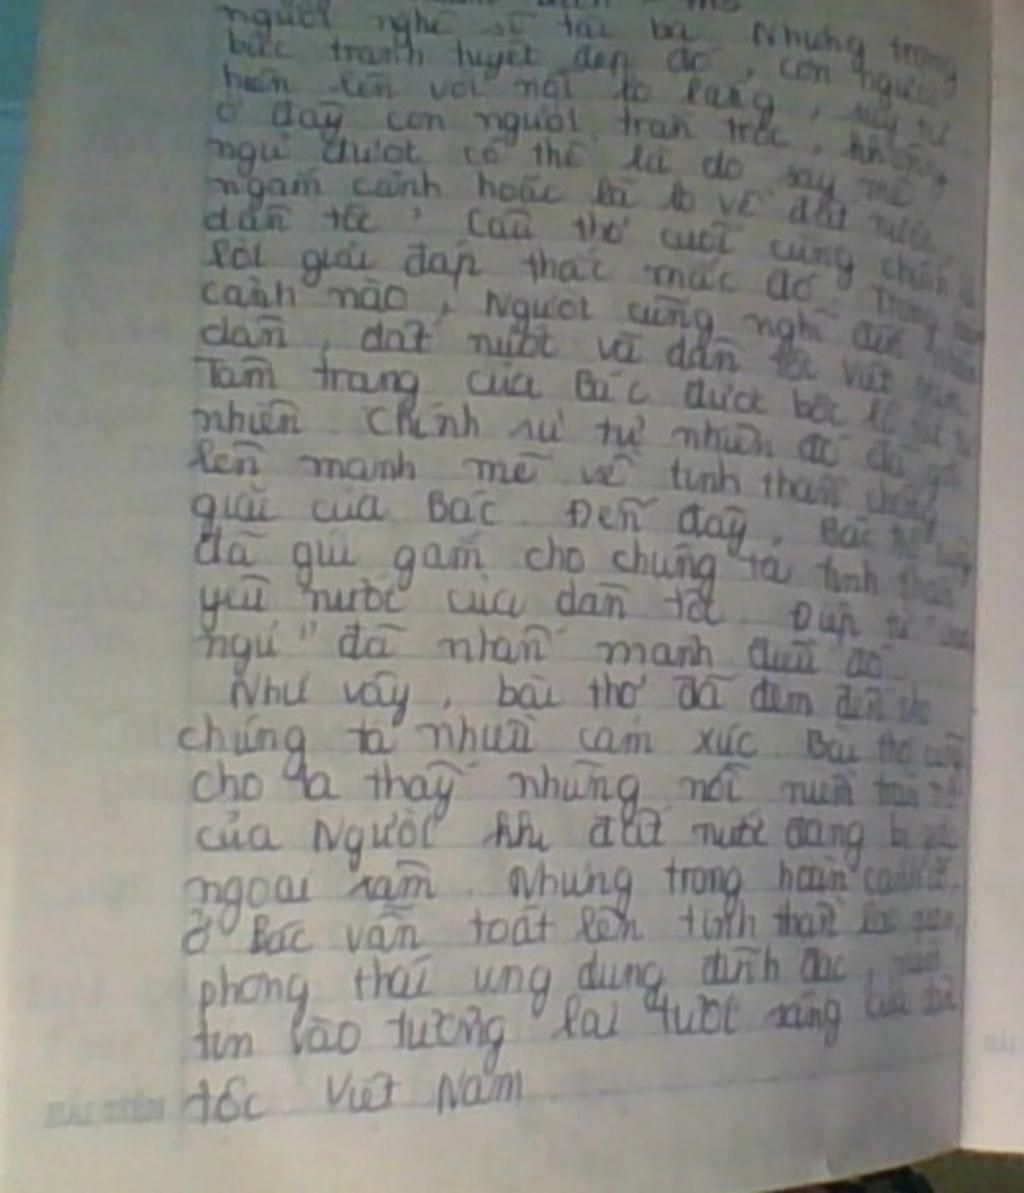 người nghệ sĩ tài ba Nhưng trong
bức tranh tuyệt đẹp đó, con người
hiện lên với nỗi lo lắng, suy tư
ở đây con người trằn trọc, không
ngủ được có thể là do say mê
ngắm cảnh hoặc là lo về đất nước
dân tộc, Câu thơ cuối cùng chính là
lời giải đáp thắc mắc đó Trong
cảnh nào, Người cũng nghĩ đến
dân, đất nước và dân tộc Việt Nam
Tâm trạng của Bác được bộc lộ
nhiên. Chính sự tự nhiên đó đã
lên mạnh mẽ về tinh thần
giải của Bác. Đến đây, Bác
đã gửi gắm cho chúng ta tinh thần
yêu nước của dân tộc. Điệp từ
ngủ" đã nhấn mạnh điều đó
Như vậy, bài thơ đã đem đến cho
chúng ta nhiều cảm xúc Bài thơ cũng
cho ta thấy những nỗi niềm
của Người khi đất nước đang bị
ngoại xâm. Nhưng trong hoàn cảnh
ở Bác vẫn toát lên tinh thần lạc quan
phong thái ung dung, đĩnh đạc, niềm
tin vào tương lai tươi sáng của dân
tộc Việt Nam